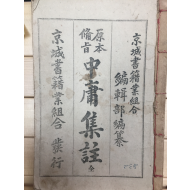 京城書籍業組合
編輯部編纂
原本
備旨
中庸集註
全
京城書籍業組合發行